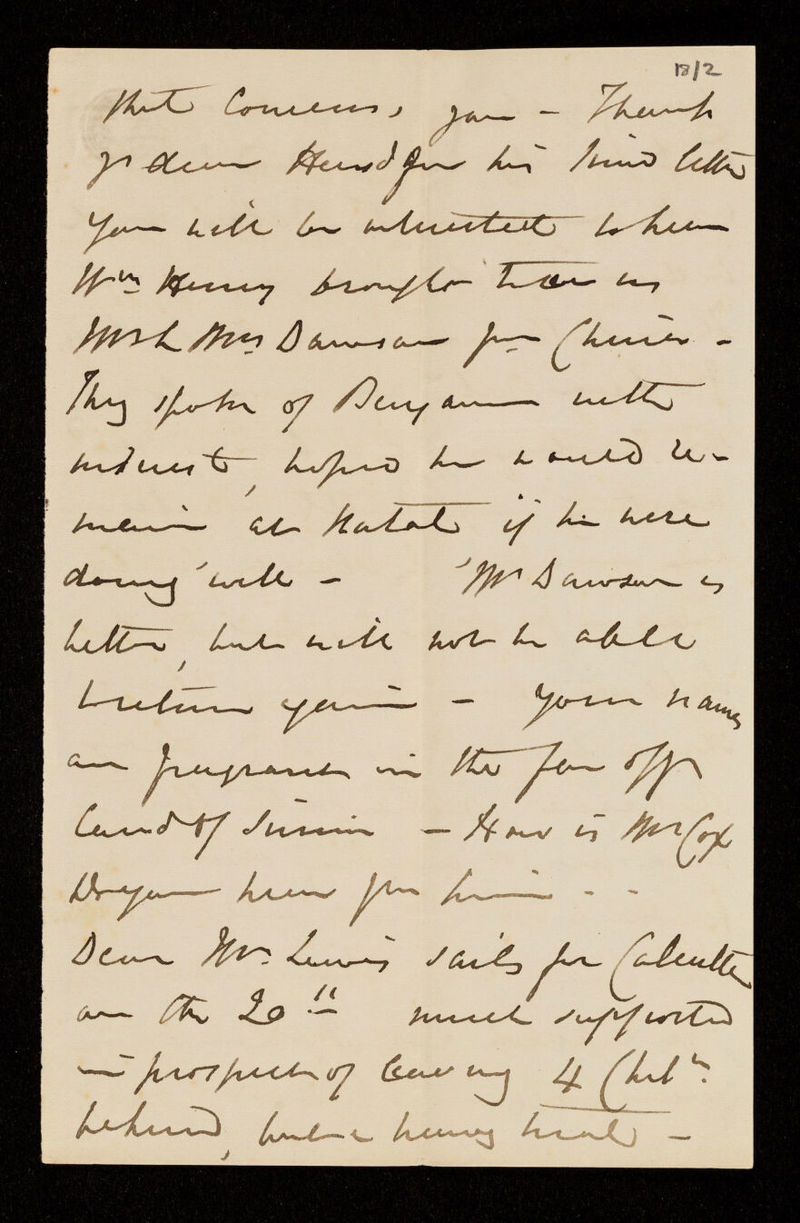 18/2
that concerns you – Thank
yr dear Husbd for his kind letter
You will be interested to hear
Wm Henry brought to see us
Mr & Mrs Dawson fm China –
They spoke of Benjamin with
interest, hoped he would re-
main at Natal if he were
doing well – Mr Dawson is
better, but will not be able
to return again – Your names
are fragrant in the far off
land of Sinim – How is Mr Cox
Do you hear fm him - -
Dear Mrs Lewis sails for Calcutta
on the 20th much supported
in prospect of leaving 4 Chiln
behind, but a heavy trial –